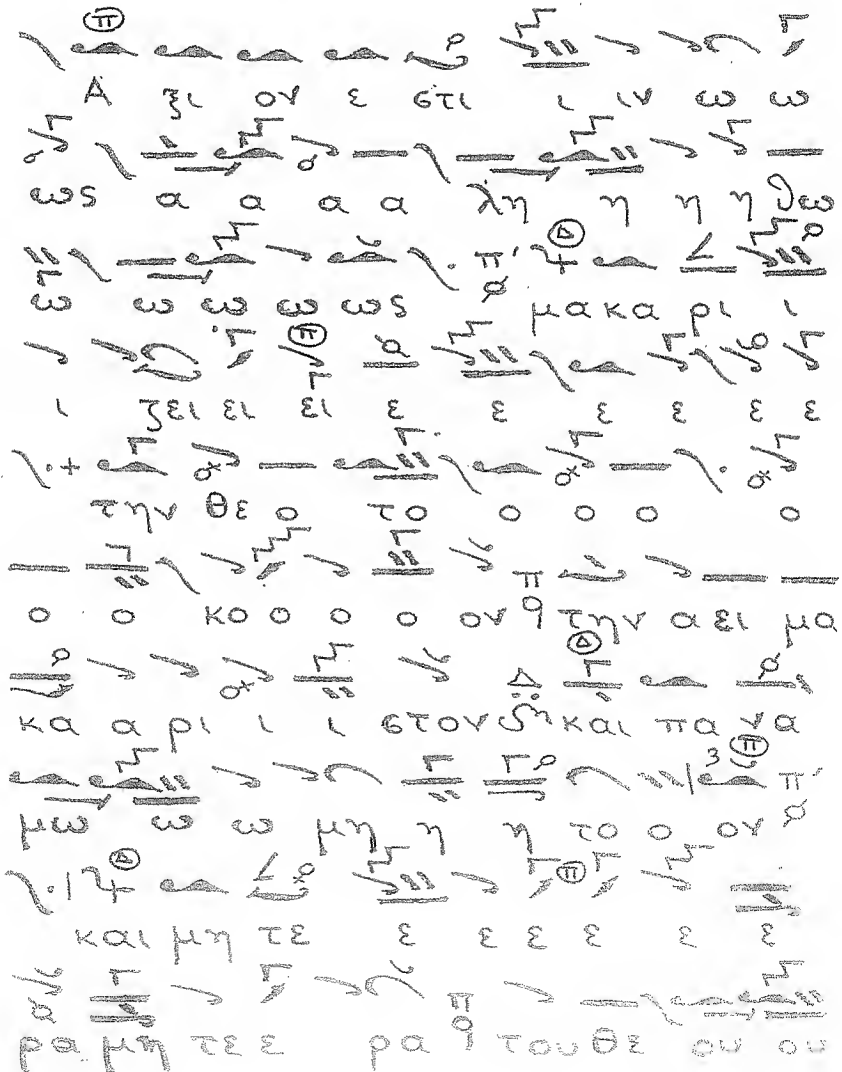 Α ξι ον ε στι ι ιν ω ω
ως α α α α λη η η η θω
ω ω ω ω ως μα κα ρι ι
ι ζει ει ει ε ε ε ε ε ε
την θε ο το ο ο ο ο
ο ο κο ο ο ο ον την α ει μα
κα α ρι ι ι στον και πα να
μω ω ω μη η η το ο ον
και μη τε ε ε ε ε ε ε
ρα μη τε ε ρα του θε ου ου